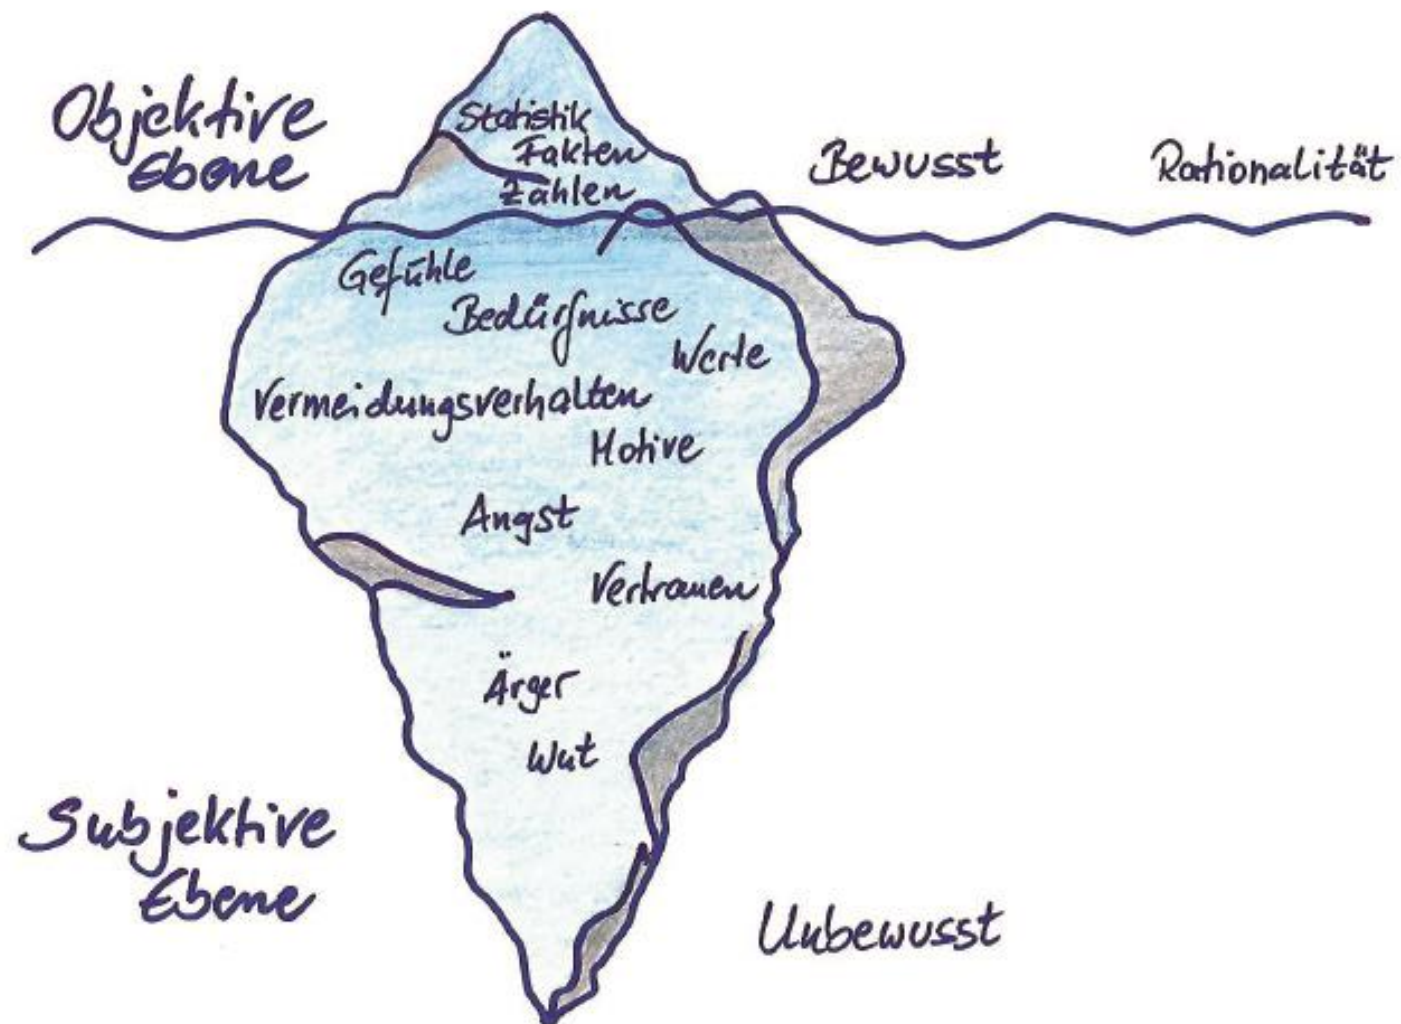 Objektive
Ebene
Statistik
Fakten
Zahlen
Bewusst
Rationalität
Gefühle
Bedürfnisse
Werte
Vermeidungsverhalten
Motive
Angst
Vertrauen
Ärger
Wut
Subjektive
Ebene
Unbewusst